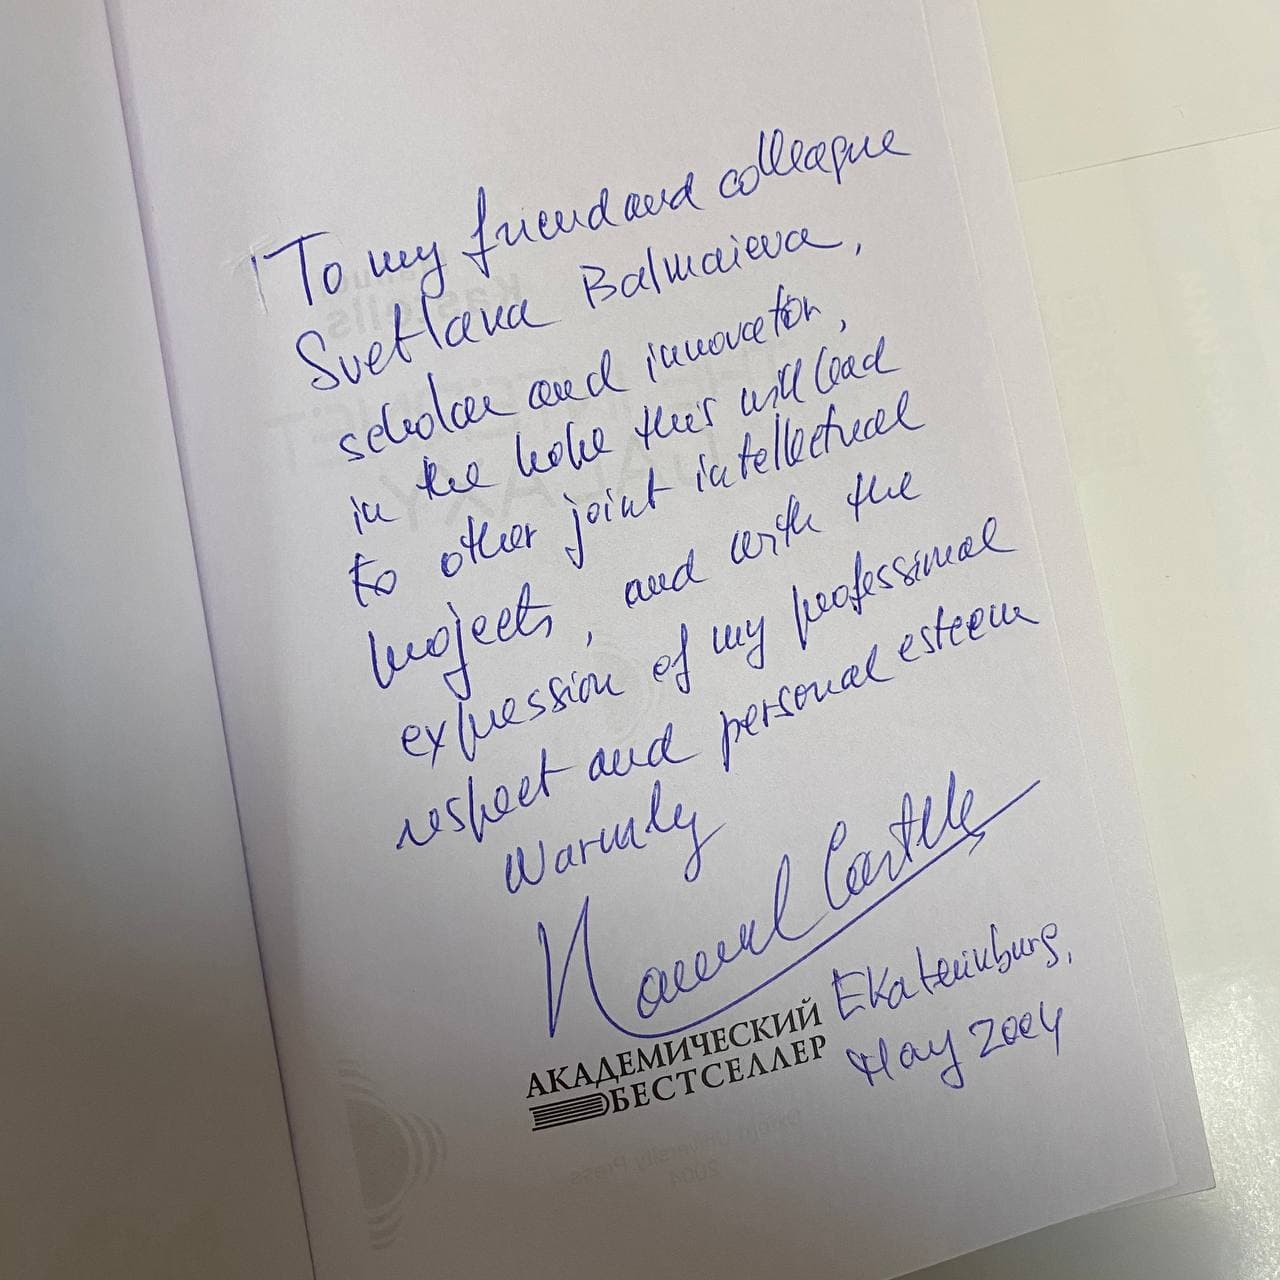 To my friend and colleague
Svetlana Balmaieva,
scholar and innovator,
in the hope this will lead
to other joint intellectual
projects, and with the
expression of my professional
respect and personal esteem
Warmly
Manuel Castells
Ekaterinburg,
May 2004
АКАДЕМИЧЕСКИЙ
БЕСТСЕЛЛЕР